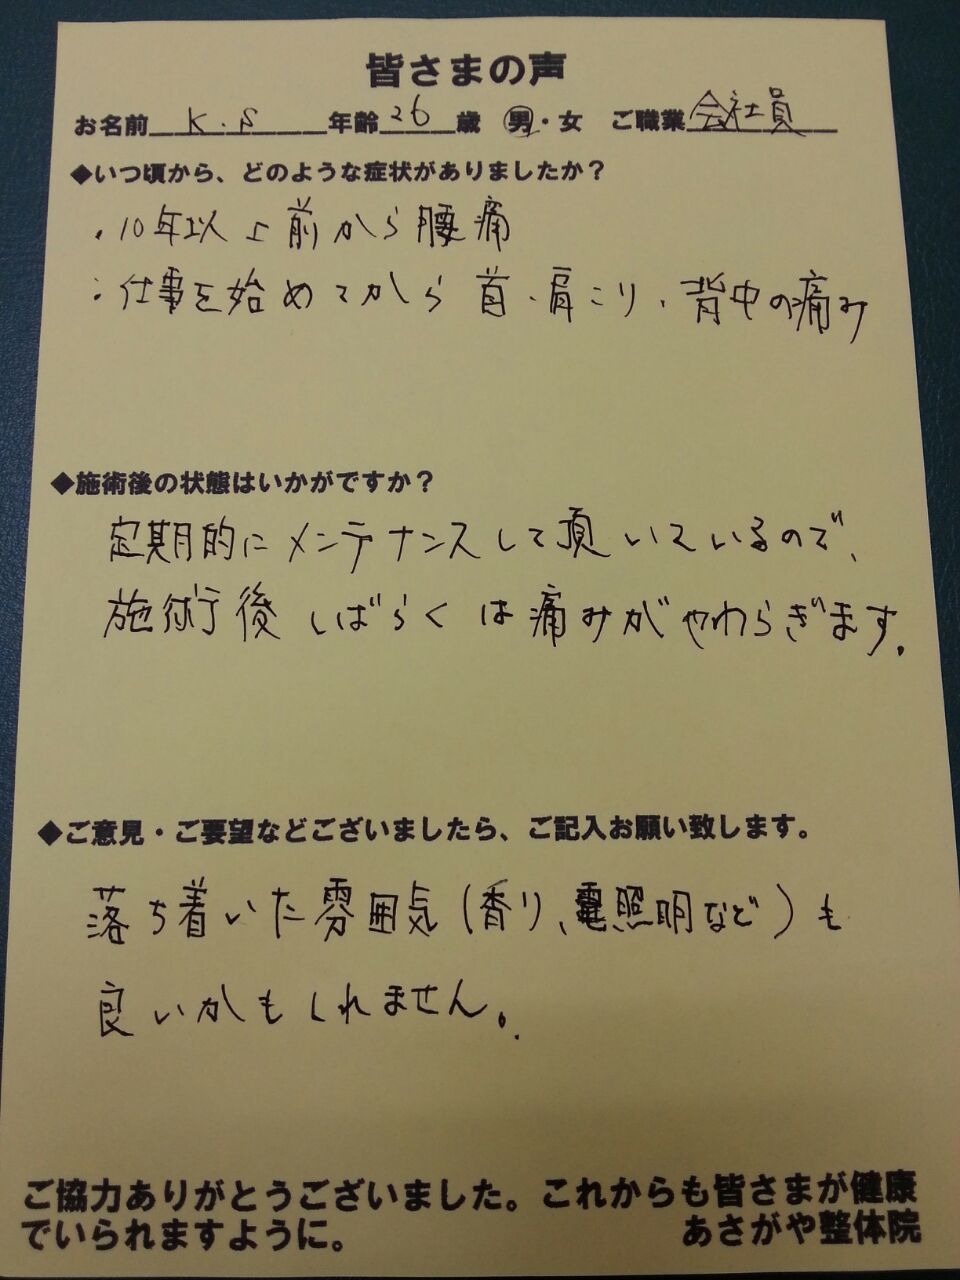 皆さまの声
お名前 K.S 年齢 26 歳 男・女 ご職業 会社員
◆いつ頃から、どのような症状がありましたか？
・10年以上前から腰痛
・仕事を始めてから首・肩こり・背中の痛み
◆施術後の状態はいかがですか？
定期的にメンテナンスして頂いているので、
施術後しばらくは痛みがやわらぎます。
◆ご意見・ご要望などございましたら、ご記入お願い致します。
落ち着いた雰囲気(香り、照明など)も
良いかもしれません。
ご協力ありがとうございました。これからも皆さまが健康
でいられますように。 あさがや整体院